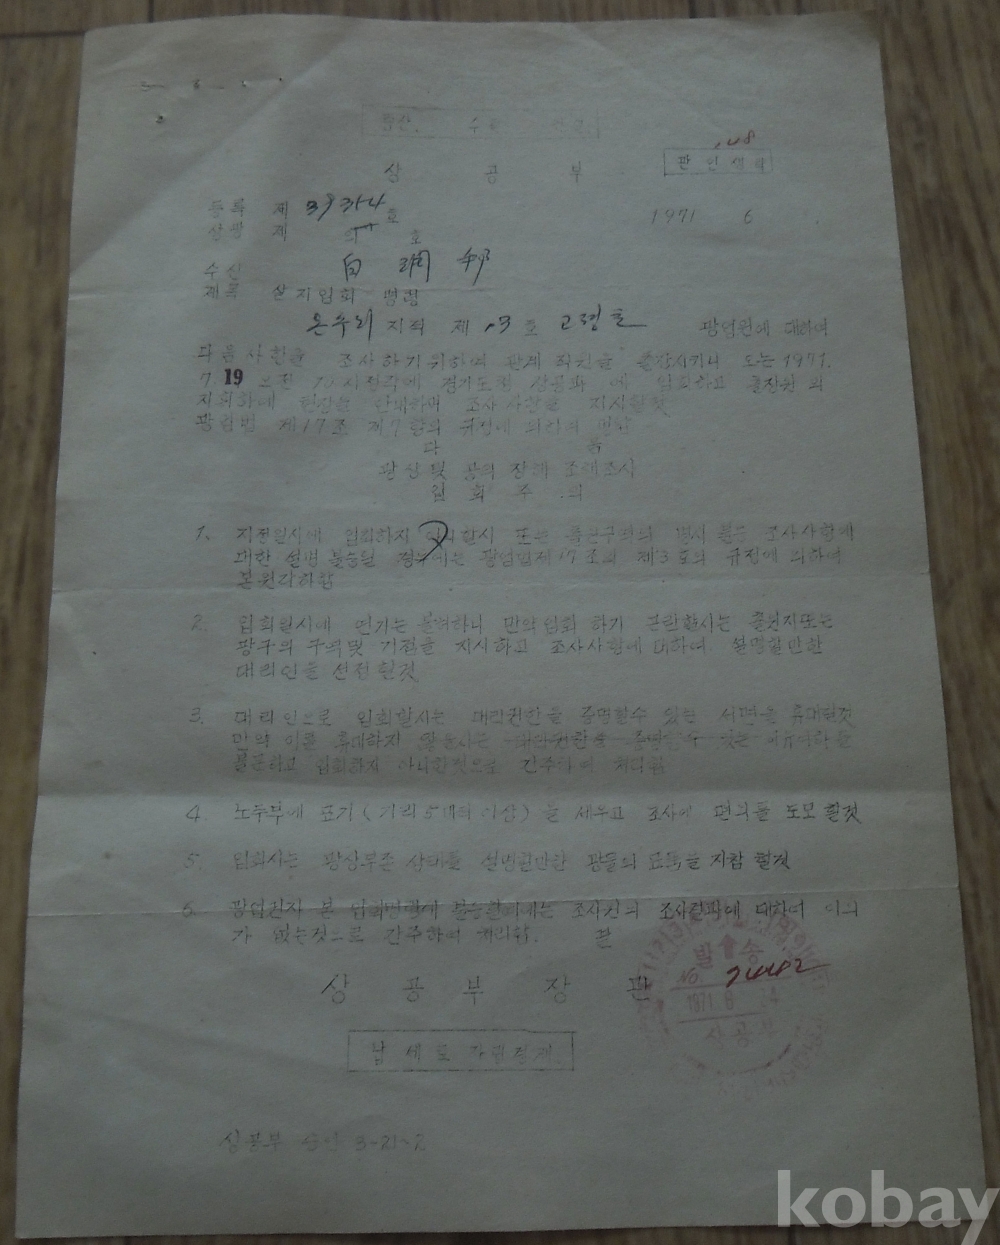 상 공 부
관 인 생 략
등록 제 39354 호
1971 6 .
상광 제 호
수신 白 潤 邨
제목 실지입회 명령
온수리 지적 제 13 호 고령토 광업원에 대하여
다음 사항을 조사하기 위하여 관계 직원을 출장시키니 오는 1971.
7. 19 오전 10시 정각에 경기도청 상공과 에 입회하고 출장원 의
지휘하에 현장을 안내하며 조사 사항을 지시할것
광업법 제17조 제7항의 규정에 의하여 명함
다 음
광상및 공익 장해 조해조사
입 회 주 의
1. 지정일시에 입회하지 아니할시 또는 출원구역의 명시 혹은 조사사항에
대한 설명 불충분 경우에는 광업법제17조의 제3호의 규정에 의하여
본원각하함
2. 입회일시에 연기는 불허하니 만약 입회 하기 곤란할시는 출원지또는
광구의 구역및 기점을 지시하고 조사사항에 대하여 설명할만한
대리인을 선정할것
3. 대리인으로 입회할시는 대리권한을 증명할수 있는 서면을 휴대할것
만약 이를 휴대하지 않을시는 대리권한을 증명할수 없는 이유여하를
불문하고 입회하지 아니한것으로 간주하여 처리함
4 노두부에 표기(기리 5메터 이상)을 세우고 조사에 편의를 도모 할것
5. 입회시는 광상부존 상태를 설명할만한 광물의 표본을 지참 할것
6. 광업권자 본 입회명령에 불응할시에는 조사원의 조사결과에 대하여 이의
가 없는것으로 간주하여 처리함. 끝
발 송
No 24482
상 공 부 장 관
1971 6 24
상공부
납 세 로 자립경제
상공부 승인 3-21-2
kobay